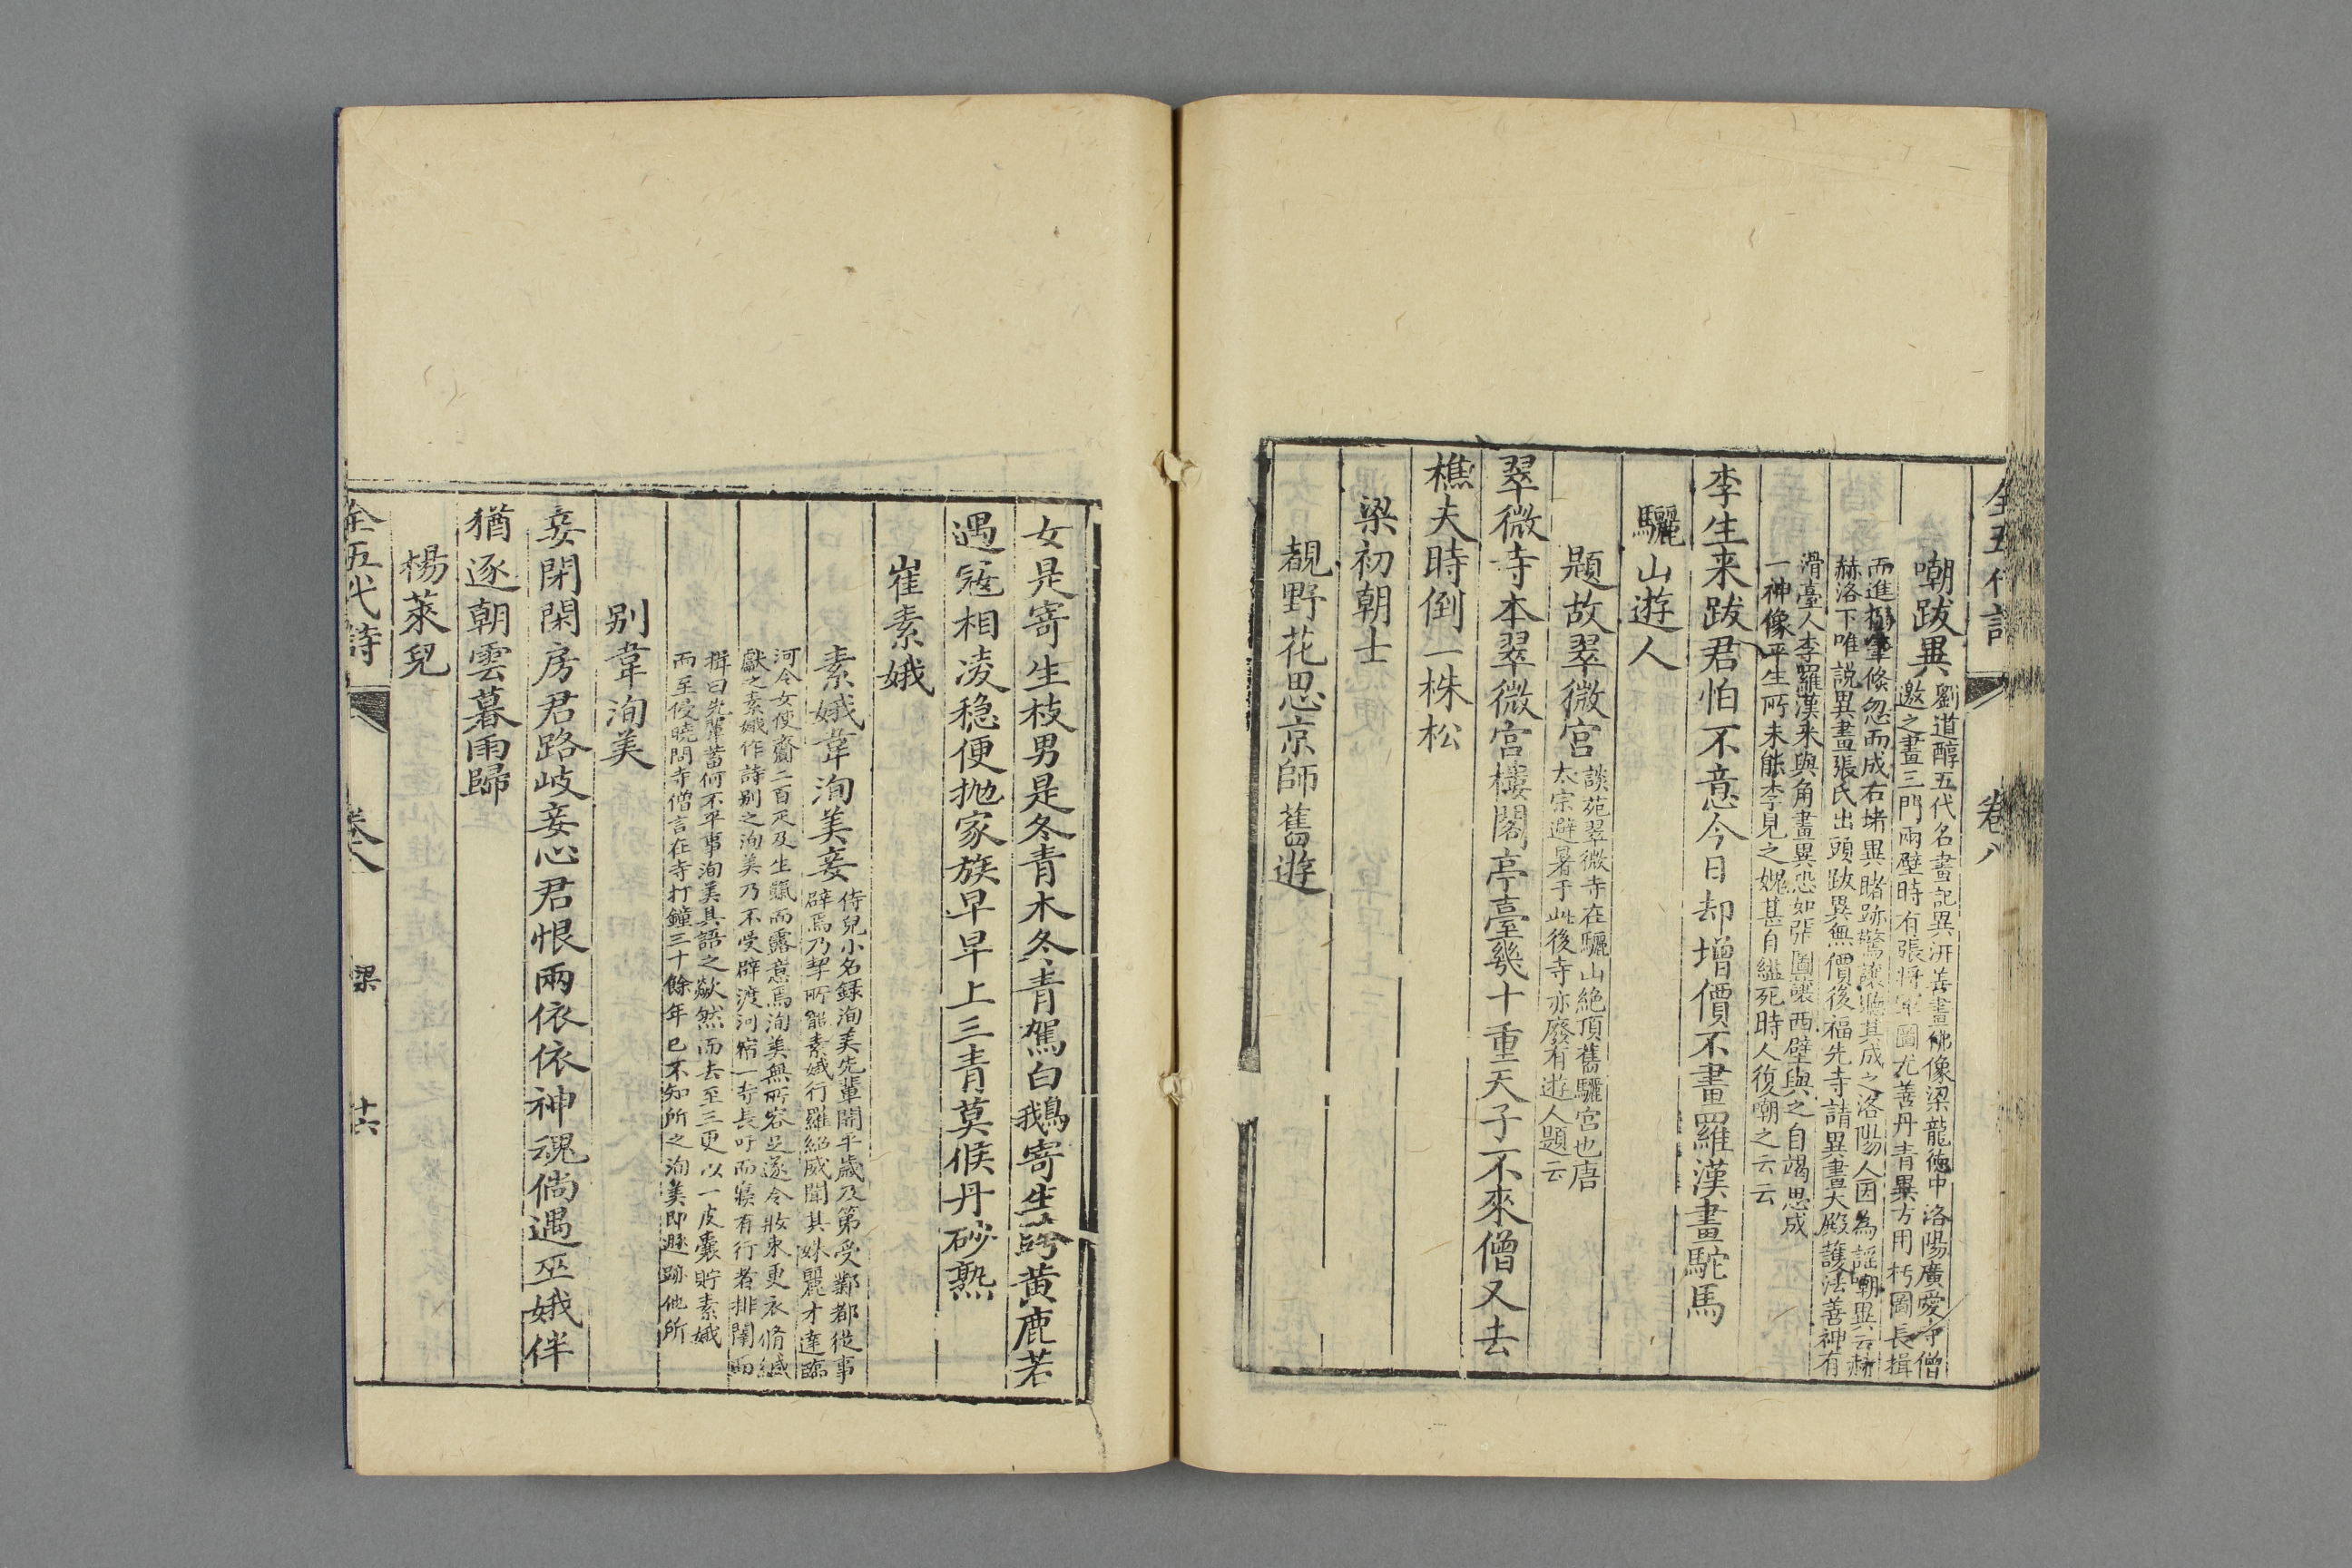 全五代詩
卷八
嘲跋異
劉道醇五代名畫記異汧善畫佛像梁龍德中洛陽廣愛寺僧
邀之畫三門兩壁時有張將軍圖尤善丹青異方用朽圖長揖
而進 倏忽而成右堵異睹跡驚讓聽其成之洛陽人因為謡嘲異云赫
赫洛下唯説異畫張氏出頭跋異無價後福先寺請異畫大殿護法善神有
滑臺人李羅漢来與角畫異恐如張圖讓西壁與之自竭思成
一神像平生所未能李見之媿其自縊死時人復嘲之云云
李生来跋君怕不意今日却增價不畫羅漢畫駝馬
驪山遊人
題故翠微宮
談苑翠微寺在驪山絶頂舊驪宮也唐
太宗避暑于此後寺亦廢有遊人題云
翠微寺本翠微宮樓閣亭臺幾十重天子不來僧又去
樵夫時倒一株松
梁初朝士
覩野花思京師舊遊
女是寄生枝男是冬青木冬青駕白鵝寄生 黄鹿若
遇寇相凌稳便抛家族早早上三青莫候丹砂熟
崔素娥
素娥韋洵美妾
侍兒小名録洵美先輩開平歲及第受鄴都從事
辟焉乃挈所寵素娥行羅紹威聞其姝麗才達臨
河令女使齎二百疋及生餼而露意焉洵美無所容足遂令妝束更衣脩緘
獻之素娥作詩别之洵美乃不受辟渡河宿一寺長吁而寢有行者排闥而
揖曰先軰蓄何不平事洵美具語之歘然而去至三更以一皮囊貯素娥
而至侵曉問寺僧言在寺打鐘三十餘年已不知所之洵美即遯跡他所
别韋洵美
妾閉閑房君路岐妾心君恨兩依依神魂倘遇巫娥伴
猶逐朝雲暮雨歸
楊萊兒
全五代詩
卷八
梁
十六